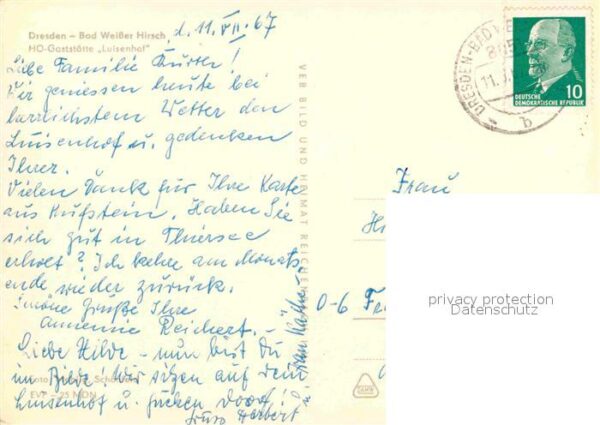 Dresden – Bad Weißer Hirsch
HO-Gaststätte „Luisenhof"
d. 11. VII. 67
Liebe Familie Kurter!
Wir geniessen heute bei
herrlichstem Wetter den
Luisenhof u. gedenken
Ihrer.
Vielen Dank für Ihre Karte
aus Kufstein. Haben Sie
sich gut in Thiersee
erholt? Ich kehre am Monats
ende wieder zurück.
Schöne Grüße Ihre
Annemie Reichert. –
Liebe Hilde – nun bist Du
im Bilde! Wir sitzen auf dem
Luisenhof u. gucken
Gruß Herbert
Foto
EVP – 25 MDN
VEB BILD UND HEIMAT REICHEN
DRESDEN-BAD
11.
b
10
DEUTSCHE
DEMOKRATISCHE REPUBLIK
Frau
H
0-6 Fr
privacy protection
Datenschutz